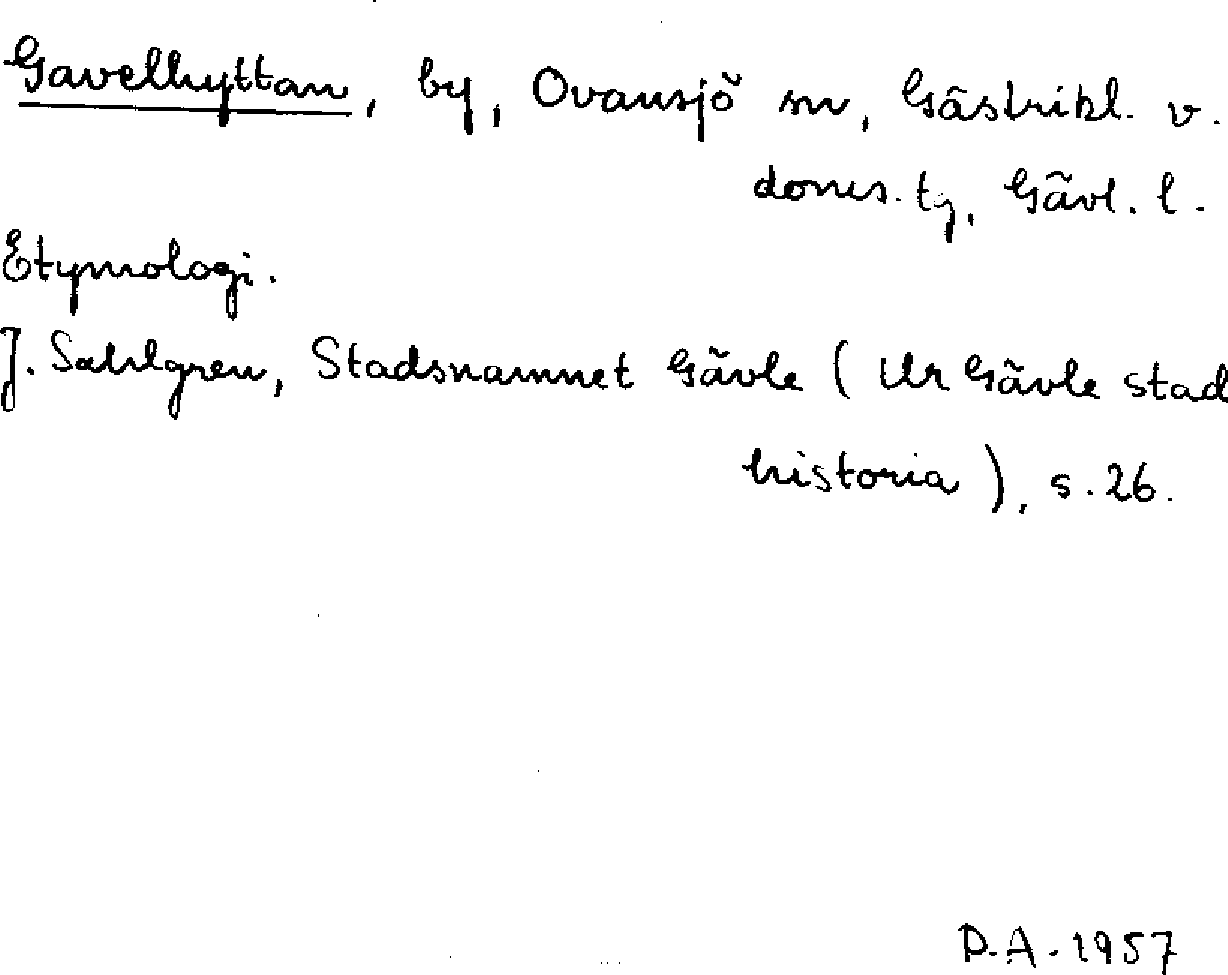 Gavelhyttan, by, Ovansjö sn, Gästrikl. v.
doms. tg, Gävl. l.
Etymologi.
J. Sahlgren, Stadsnamnet Gävle (Ur Gävle stad
historia), s. 26.
D.A. 1957